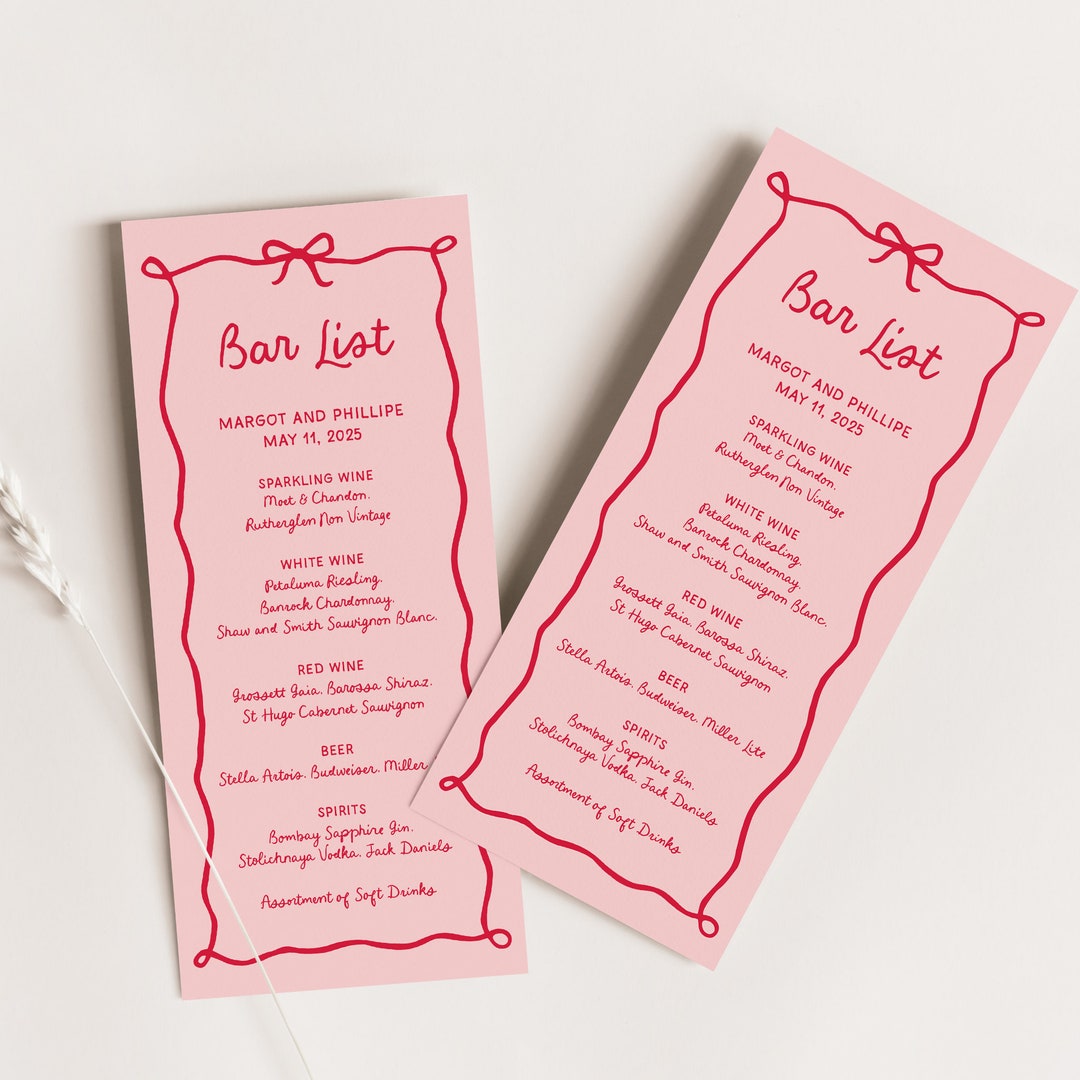 Bar List
MARGOT AND PHILLIPE
MAY 11, 2025
SPARKLING WINE
Moet & Chandon.
Rutherglen Non Vintage
WHITE WINE
Petaluma Riesling.
Banrock Chardonnay.
Shaw and Smith Sauvignon Blanc.
RED WINE
Grossett Gaia. Barossa Shiraz.
St Hugo Cabernet Sauvignon
BEER
Stella Artois. Budweiser. Miller
SPIRITS
Bombay Sapphire Gin.
Stolichnaya Vodka. Jack Daniels
Assortment of Soft Drinks
Bar List
MARGOT AND PHILLIPE
MAY 11, 2025
SPARKLING WINE
Moet & Chandon.
Rutherglen Non Vintage
WHITE WINE
Petaluma Riesling.
Banrock Chardonnay.
Shaw and Smith Sauvignon Blanc.
RED WINE
Grossett Gaia. Barossa Shiraz.
St Hugo Cabernet Sauvignon
BEER
Stella Artois. Budweiser. Miller Lite
SPIRITS
Bombay Sapphire Gin.
Stolichnaya Vodka. Jack Daniels
Assortment of Soft Drinks